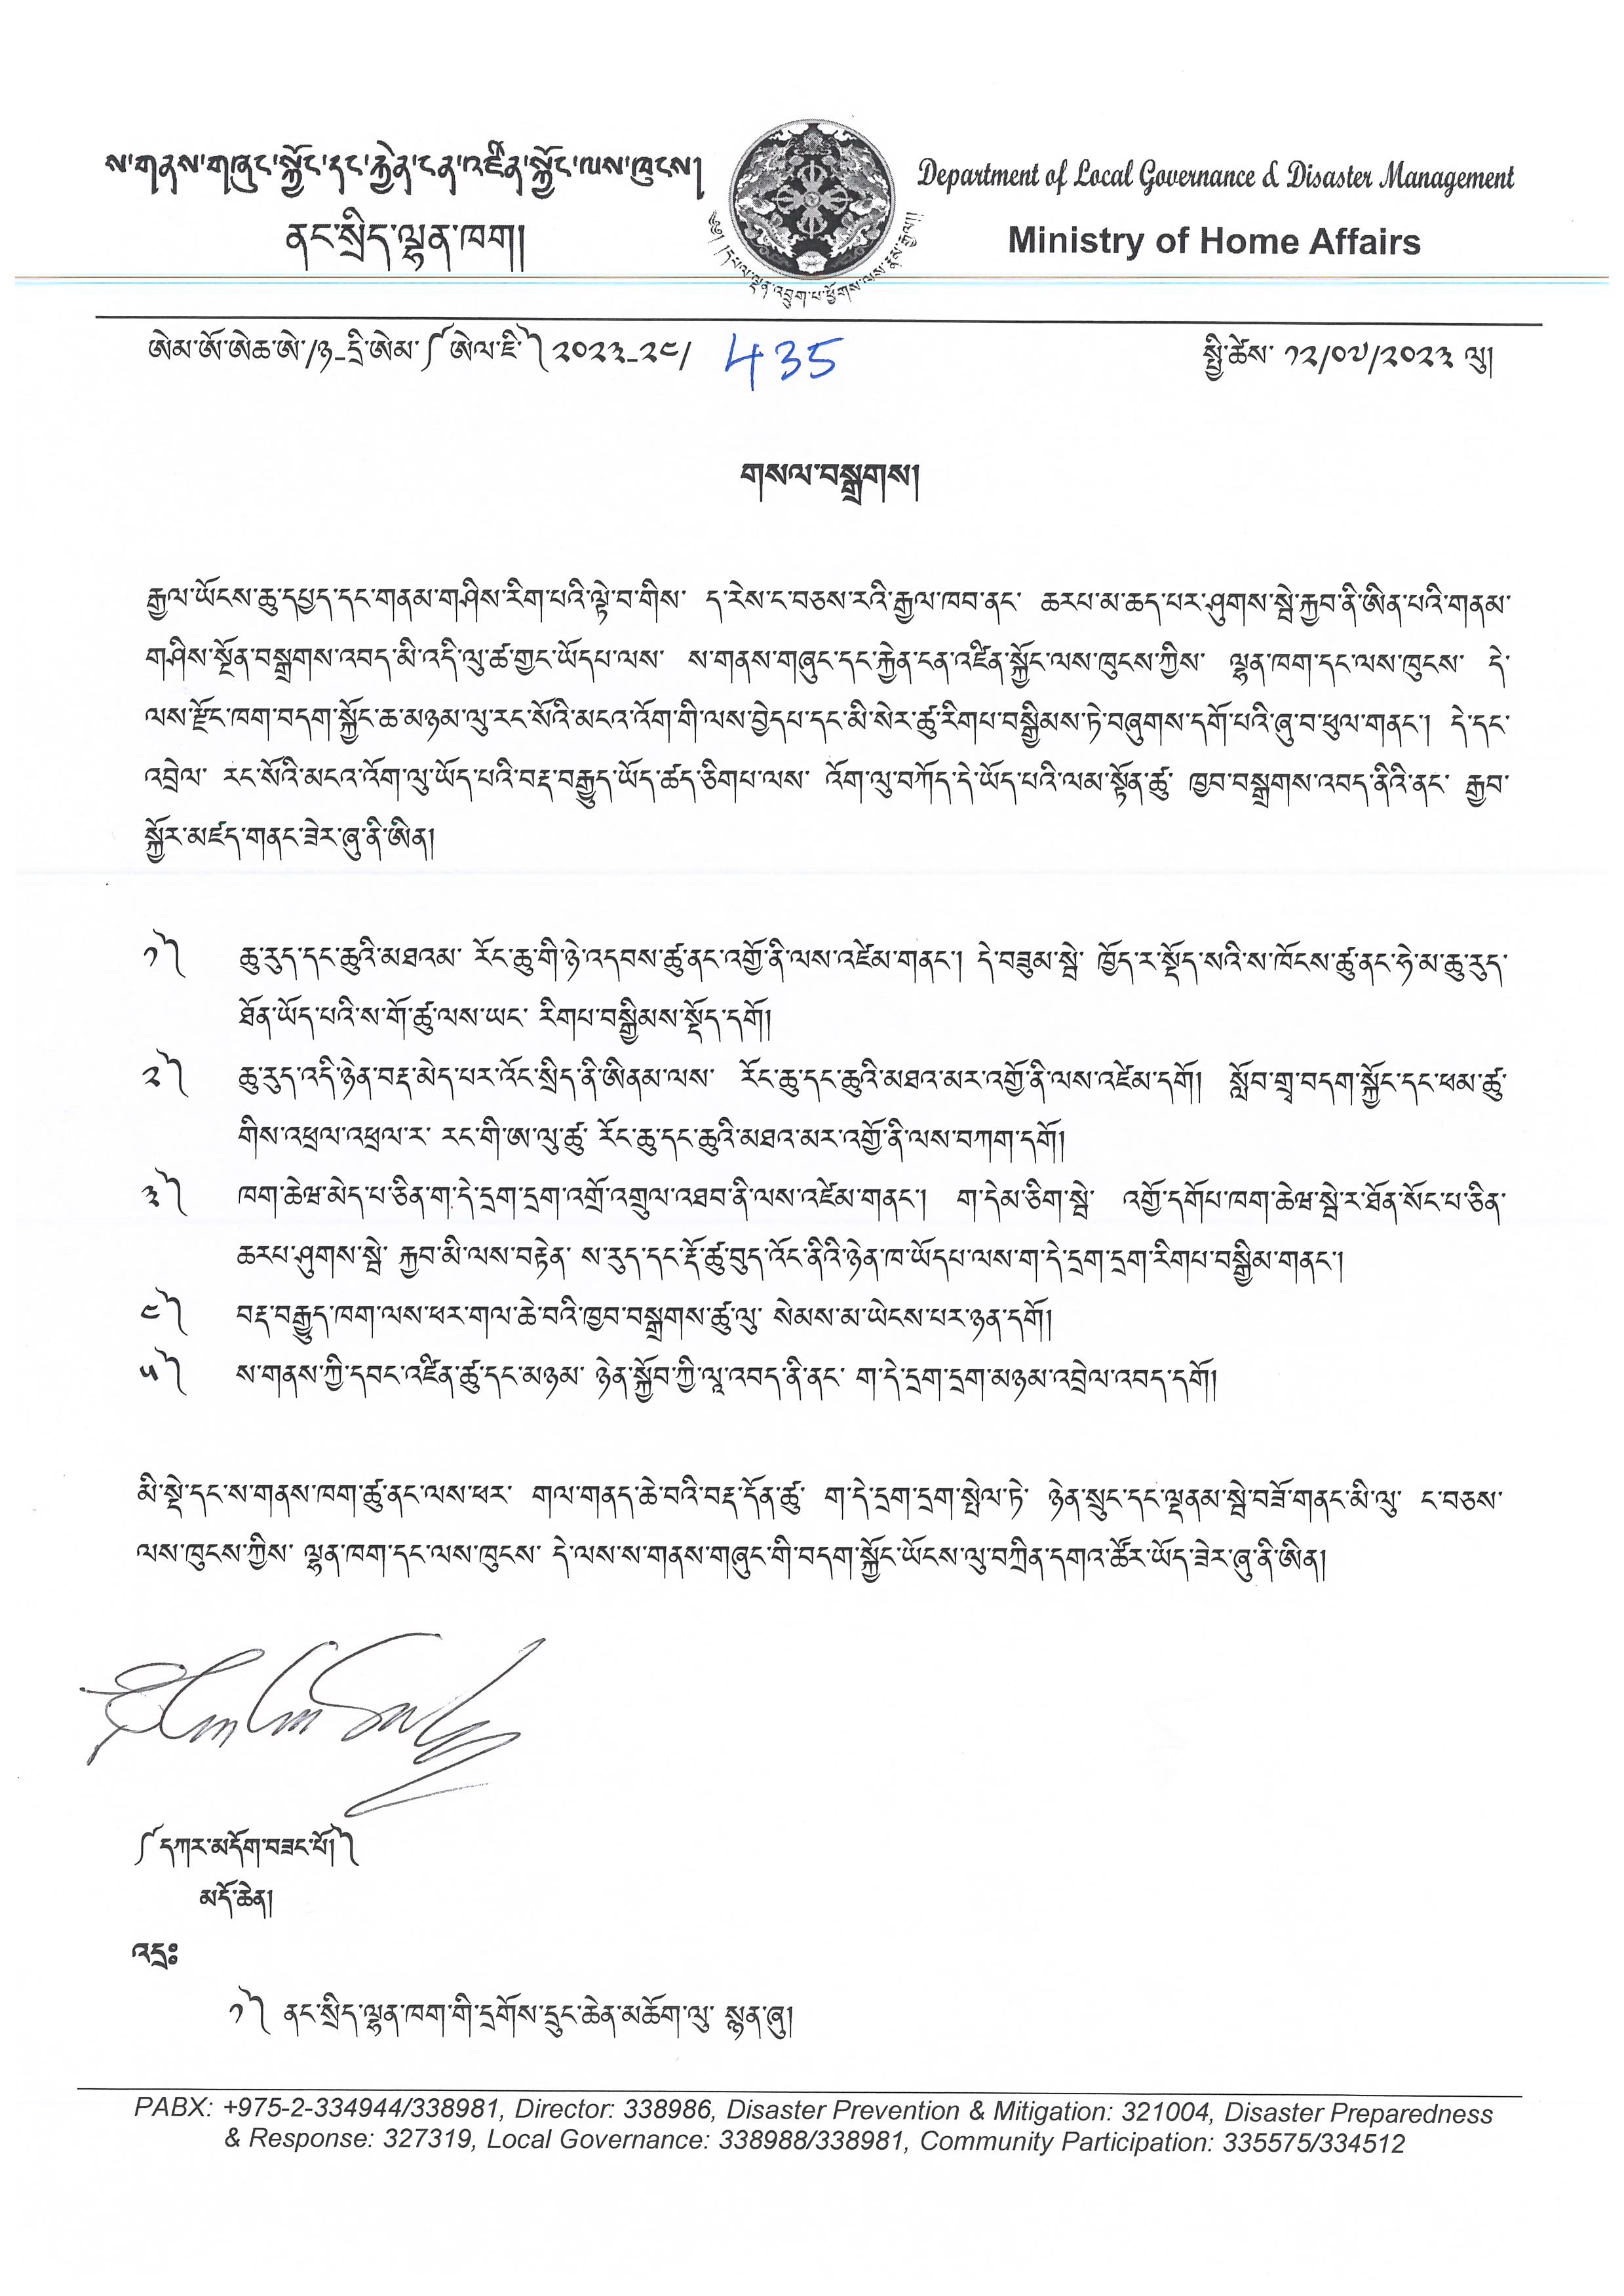 ས་གནས་གཞུང་སྐྱོང་དང་རྐྱེན་ངན་འཛིན་སྐྱོང་ལས་ཁུངས།
ནང་སྲིད་ལྷན་ཁག།
༄༅། །དཔལ་ལྡན་འབྲུག་པ་ཕྱོགས་ལས་རྣམ་རྒྱལ།།
Department of Local Governance & Disaster Management
Ministry of Home Affairs
ཨེམ་ཨོ་ཨེཆ་ཨེ་/ཉ-ཌི་ཨེམ་༼ཨེལ་ཇི་༽༢༠༢༣-༢༤/ 435
སྤྱི་ཚེས་ ༡༢/༠༧/༢༠༢༣ ལུ།
གསལ་བསྒྲགས།
རྒྱལ་ཡོངས་ཆུ་དཔྱད་དང་གནམ་གཤིས་རིག་པའི་ལྟེ་བ་གིས་ ད་རེས་ང་བཅས་རའི་རྒྱལ་ཁབ་ནང་ ཆརཔ་མ་ཆད་པར་ཤུགས་སྦེ་རྐྱབ་ནི་ཨིན་པའི་གནམ་
གཤིས་སྔོན་བསྒྲགས་འབད་མི་འདི་ལུ་ཚ་གྱང་ཡོདཔ་ལས་ ས་གནས་གཞུང་དང་རྐྱེན་ངན་འཛིན་སྐྱོང་ལས་ཁུངས་ཀྱིས་ ལྷན་ཁག་དང་ལས་ཁུངས་ དེ་
ལས་རྫོང་ཁག་བདག་སྐྱོང་ཆ་མཉམ་ལུ་རང་སོའི་མངའ་འོག་གི་ལས་བྱེདཔ་དང་མི་སེར་ཚུ་རིགཔ་བསྒྲིམས་ཏེ་བཞུགས་དགོ་པའི་ཞུ་བ་ཕུལ་གནང་། དེ་དང་
འབྲེལ་ རང་སོའི་མངའ་འོག་ལུ་ཡོད་པའི་བརྡ་བརྒྱུད་ཡོད་ཚད་ཅིགཔ་ལས་ འོག་ལུ་བཀོད་དེ་ཡོད་པའི་ལམ་སྟོན་ཚུ་ ཁྱབ་བསྒྲགས་འབད་ནིའི་ནང་ རྒྱབ་
སྐྱོར་མཛད་གནང་ཟེར་ཞུ་ནི་ཨིན།
༡༽ ཆུ་རུད་དང་ཆུའི་མཐའམ་ རོང་ཆུ་གི་ཉེ་འདབས་ཚུ་ནང་འགྱོ་ནི་ལས་འཛེམ་གནང་། དེ་བཟུམ་སྦེ་ ཁྱོད་ར་སྡོད་སའི་ས་ཁོངས་ཚུ་ནང་ཧེ་མ་ཆུ་རུད་
ཐོན་ཡོད་པའི་ས་གོ་ཚུ་ལས་ཡང་ རིགཔ་བསྒྲིམས་སྡོད་དགོ།
༢༽ ཆུ་རུད་འདི་ཉེན་བརྡ་མེད་པར་འོང་སྲིད་ནི་ཨིནམ་ལས་ རོང་ཆུ་དང་ཆུའི་མཐའ་མར་འགྱོ་ནི་ལས་འཛེམ་དགོ། སློབ་གྲྭ་བདག་སྐྱོང་དང་ཕམ་ཚུ་
གིས་འཕྲལ་འཕྲལ་ར་ རང་གི་ཨ་ལུ་ཚུ་ རོང་ཆུ་དང་ཆུའི་མཐའ་མར་འགྱོ་ནི་ལས་བཀག་དགོ།
༣༽ ཁག་ཆེཝ་མེད་པ་ཅིན་ག་དེ་དྲག་དྲག་འགྲོ་འགྲུལ་འཐབ་ནི་ལས་འཛེམ་གནང་། ག་དེམ་ཅིག་སྦེ་ འགྱོ་དགོཔ་ཁག་ཆེཝ་སྦེ་ར་ཐོན་སོང་པ་ཅིན་
ཆརཔ་ཤུགས་སྦེ་ རྐྱབ་མི་ལས་བརྟེན་ ས་རུད་དང་རྡོ་ཚུ་བུད་འོང་ནིའི་ཉེན་ཁ་ཡོདཔ་ལས་ག་དེ་དྲག་དྲག་རིགཔ་བསྒྲིམ་གནང་།
༤༽ བརྡ་བརྒྱུད་ཁག་ལས་ཕར་གལ་ཆེ་བའི་ཁྱབ་བསྒྲགས་ཚུ་ལུ་ སེམས་མ་ཡེངས་པར་ཉན་དགོ།
༥༽ ས་གནས་ཀྱི་དབང་འཛིན་ཚུ་དང་མཉམ་ ཉེན་སྐྱོབ་ཀྱི་ལཱ་འབད་ནི་ནང་ ག་དེ་དྲག་དྲག་མཉམ་འབྲེལ་འབད་དགོ།
མི་སྡེ་དང་ས་གནས་ཁག་ཚུ་ནང་ལས་ཕར་ གལ་གནད་ཆེ་བའི་བརྡ་དོན་ཚུ་ ག་དེ་དྲག་དྲག་སྤེལ་ཏེ་ ཉེན་སྲུང་དང་ལྡནམ་སྦེ་བཟོ་གནང་མི་ལུ་ ང་བཅས་
ལས་ཁུངས་ཀྱིས་ ལྷན་ཁག་དང་ལས་ཁུངས་ དེ་ལས་ས་གནས་གཞུང་གི་བདག་སྐྱོང་ཡོངས་ལུ་བཀྲིན་དགའ་ཚོར་ཡོད་ཟེར་ཞུ་ནི་ཨིན།
༼དཀར་མདོག་བཟང་པོ།༽
མདོ་ཆེན།
འདྲཿ
༡༽ ནང་སྲིད་ལྷན་ཁག་གི་དྲགོས་དྲུང་ཆེན་མཆོག་ལུ་ སྙན་ཞུ།
PABX: +975-2-334944/338981, Director: 338986, Disaster Prevention & Mitigation: 321004, Disaster Preparedness
& Response: 327319, Local Governance: 338988/338981, Community Participation: 335575/334512